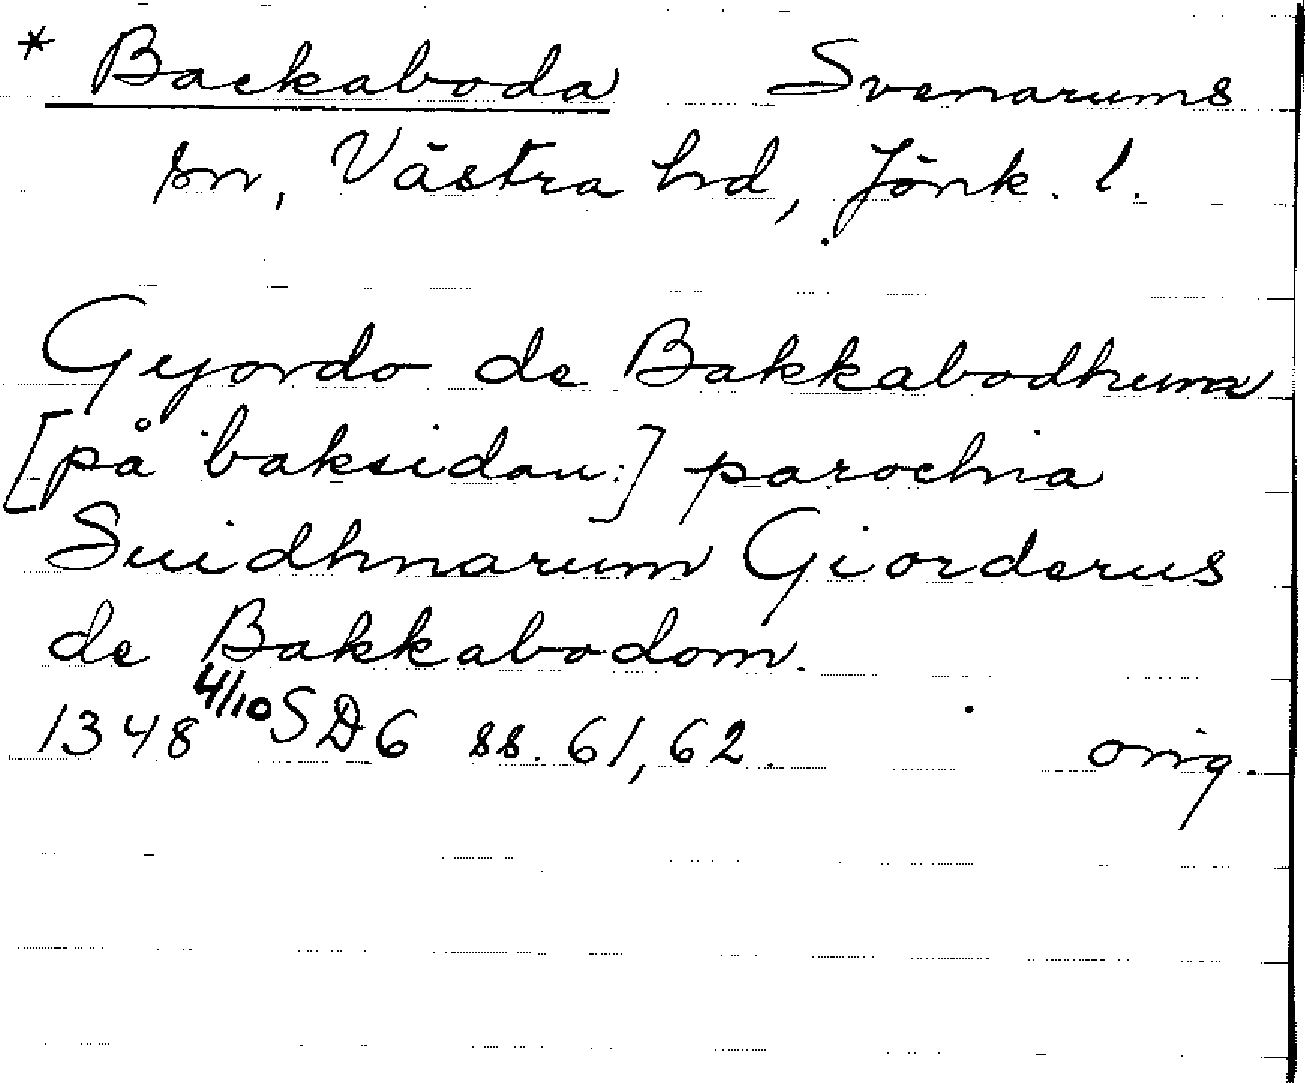 * Backaboda Svenarums
sn, Västra hd, Jönk. l.
Gyordo de Bakkabodhum
[på baksidan:] parochia
Suidhnarum Giorderus
de Bakkabodom.
1348 4/10 SD6 ss. 61, 62. orig.